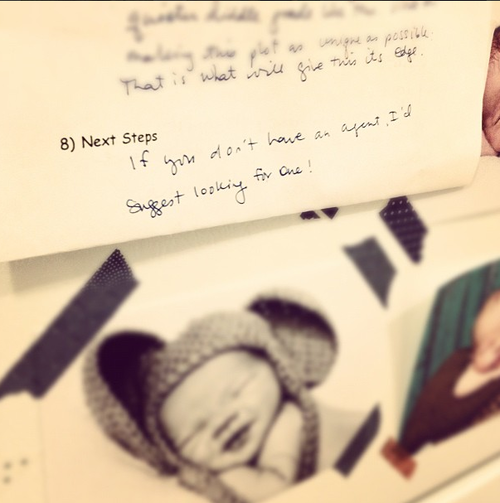 making this plot as unique as possible.
That is what will give this its edge.
8) Next Steps
If you don't have an agent, I'd
suggest looking for one!